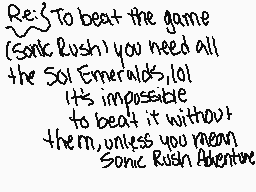 Re: To beat the game
(Sonic Rush) you need all
the Sol Emeralds, lol
It's impossible
to beat it without
them, unless you mean
Sonic Rush Adventure